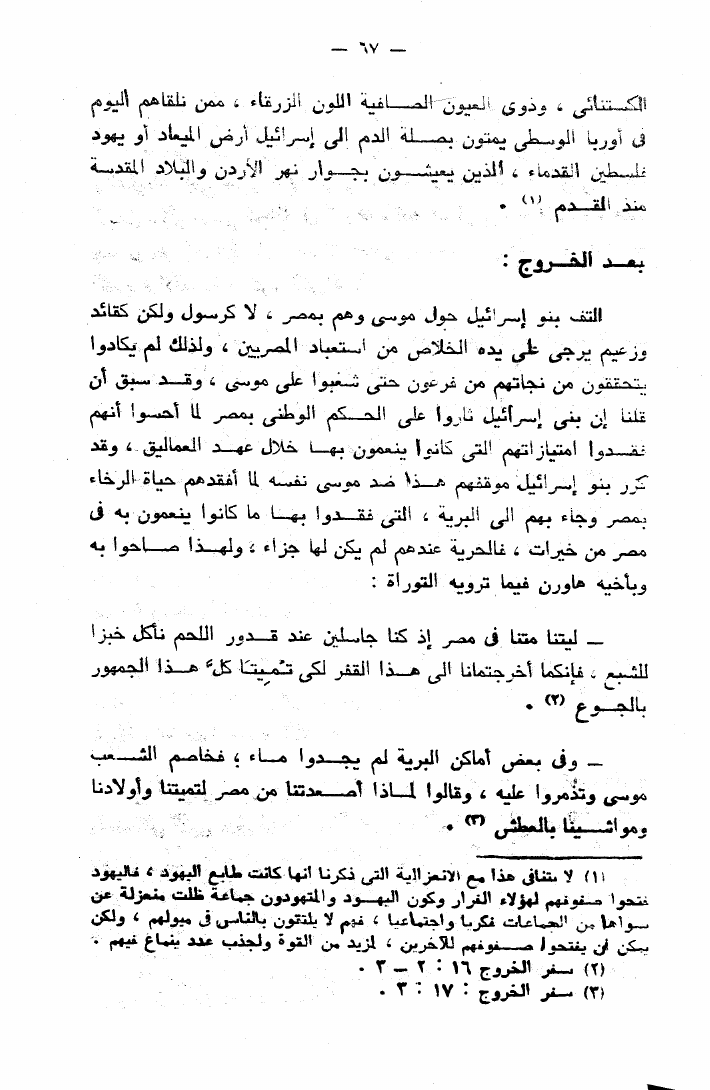 — ٦٧ —
الكستنائى ، وذوى العيون الصافية اللون الزرقاء ، ممن نلقاهم اليوم
فى أوربا الوسطى يمتون بصلة الدم الى إسرائيل أرض الميعاد أو يهود
فلسطين القدماء ، الذين يعيشون بجوار نهر الأردن والبلاد المقدسة
منذ القدم (١) .
بعد الخروج :
التف بنو إسرائيل حول موسى وهم بمصر ، لا كرسول ولكن كقائد
وزعيم يرجى على يده الخلاص من استعباد المصريين ، ولذلك لم يكادوا
يتحققون من نجاتهم من فرعون حتى شغبوا على موسى ، وقد سبق أن
قلنا إن بنى إسرائيل ثاروا على الحكم الوطنى بمصر لما أحسوا أنهم
فقدوا امتيازاتهم التى كانوا ينعمون بها خلال عهد العماليق ، وقد
كرر بنو إسرائيل موقفهم هذا ضد موسى نفسه لما أفقدهم حياة الرخاء
بمصر وجاء بهم الى البرية ، التى فقدوا بها ما كانوا ينعمون به فى
مصر من خيرات ، فالحرية عندهم لم يكن لها جزاء ، ولهذا صاحوا به
وبأخيه هاورن فيما ترويه التوراة :
— ليتنا متنا فى مصر إذ كنا جاسلين عند قدور اللحم نأكل خبزا
للشبع ، فإنكما أخرجتمانا الى هذا القفر لكى تُمِيتَا كلَّ هذا الجمهور
بالجوع (٢) .
— وفى بعض أماكن البرية لم يجدوا ماء ؛ فخاصم الشعب
موسى وتذمروا عليه ، وقالوا لماذا أصعدتنا من مصر لتميتنا وأولادنا
ومواشينا بالعطش (٣) .
(١) لا يتنافى هذا مع الانعزالية التى ذكرنا انها كانت طابع اليهود ، فاليهود
فتحوا صفوفهم لهؤلاء الفرار وكون اليهود والمتهودون جماعة ظلت منعزلة عن
سواها من الجماعات فكريا واجتماعيا ، فهم لا يلتقون بالناس فى ميولهم ، ولكن
يمكن أن يفتحوا صفوفهم للآخرين ، لمزيد من القوة ولجذب عدد ينماع فيهم .
(٢) سفر الخروج ١٦ : ٢ — ٣ .
(٣) سفر الخروج : ١٧ : ٣ .